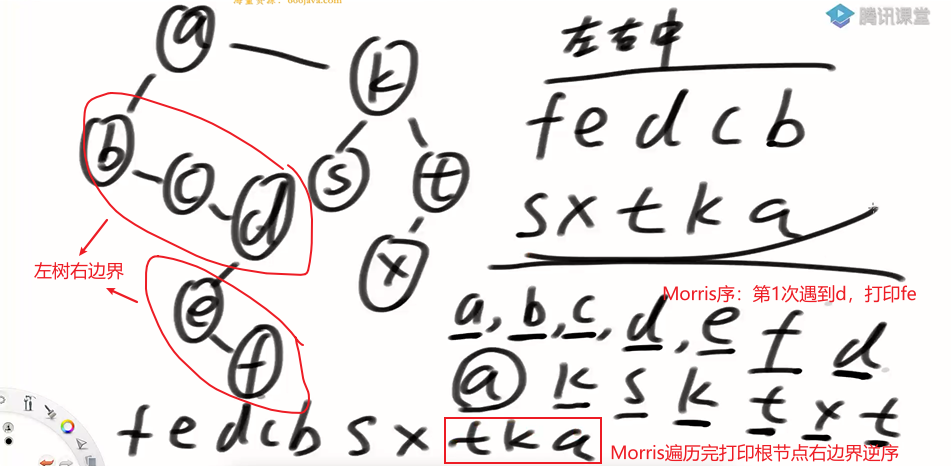 海量资源：666java.com
腾讯课堂
a
k
b
c
d
s
t
e
x
f
左树右边界
左右中
fedcb
sxtka
Morris序：第1次遇到d，打印fe
a,b,c,d,e f d
a k s k t x t
fedcbsxtka
Morris遍历完打印根节点右边界逆序